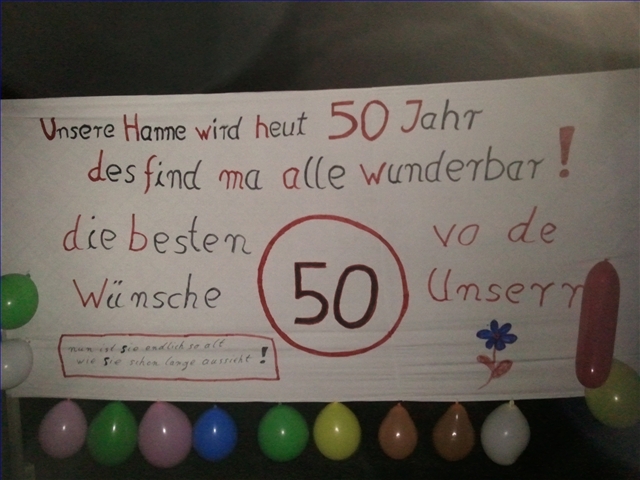 Unsere Hanne wird heut 50 Jahr
des find ma alle wunderbar!
die besten
Wünsche
50
vo de
Unserr
nun ist sie endlich so alt
wie sie schon lange aussieht!